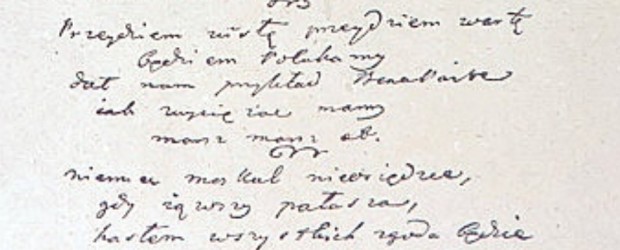 Przeydziem wisłę przeydziem wartę
będziem Polakamy
dał nam przykład Bonaparte
jak zwycięzać mamy
marsz marsz et.
niemiec moskal nieosiędzie,
gdy iąwszy pałasza,
hasłem wszystkich zgoda będzie